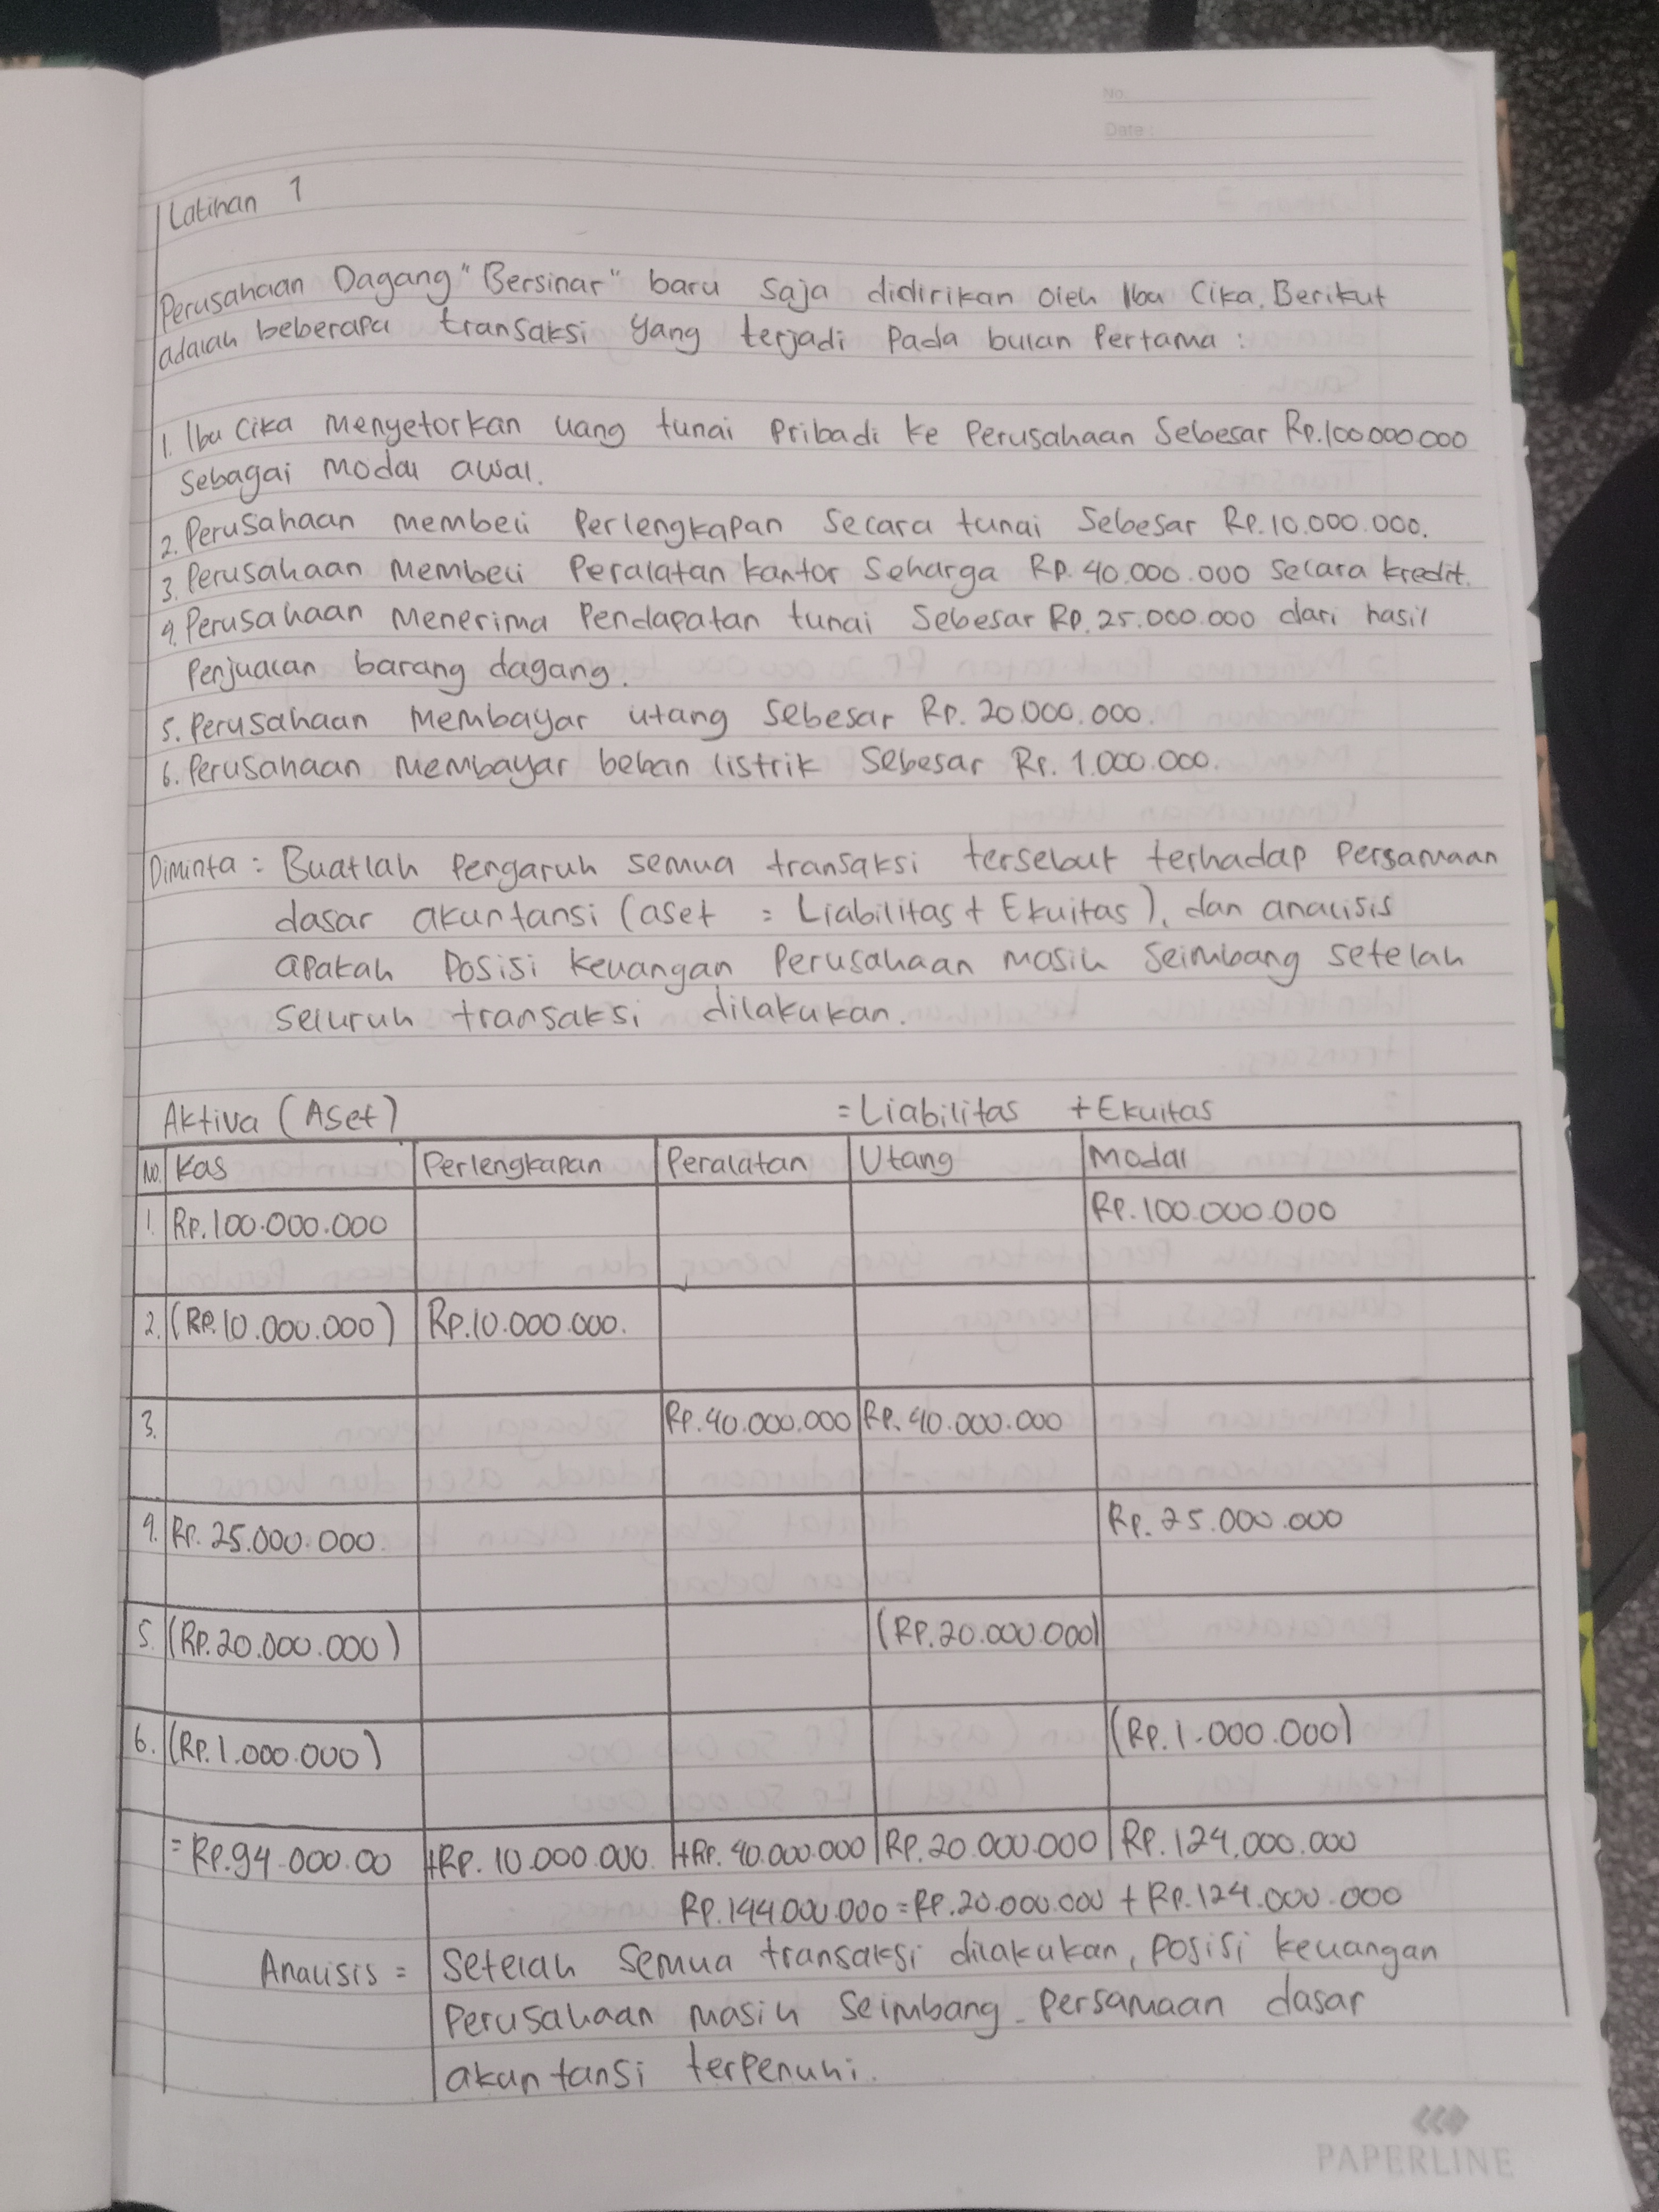 No.
Date :
Latihan 1
Perusahaan Dagang "Bersinar" baru saja didirikan oleh Ibu Cika. Berikut
adalah beberapa transaksi yang terjadi pada bulan pertama :
1. Ibu Cika menyetorkan uang tunai pribadi ke perusahaan sebesar Rp.100000000
sebagai modal awal.
2. Perusahaan membeli perlengkapan secara tunai sebesar Rp.10.000.000.
3. Perusahaan membeli peralatan kantor seharga Rp. 40.000.000 secara kredit.
4. Perusahaan menerima pendapatan tunai sebesar Rp. 25.000.000 dari hasil
penjualan barang dagang.
5. Perusahaan membayar utang sebesar Rp. 20.000.000.
6. Perusahaan membayar beban listrik sebesar Rp. 1.000.000.
Diminta : Buatlah pengaruh semua transaksi tersebut terhadap persamaan
dasar akuntansi (aset = Liabilitas + Ekuitas), dan analisis
apakah posisi keuangan perusahaan masih seimbang setelah
seluruh transaksi dilakukan.
Aktiva (Aset) = Liabilitas + Ekuitas
No. Kas Perlengkapan Peralatan Utang Modal
1. Rp.100.000.000 Rp.100.000.000
2. (Rp.10.000.000) Rp.10.000.000.
3. Rp.40.000.000 Rp.40.000.000
4. Rp. 25.000.000. Rp. 25.000.000
5. (Rp.20.000.000) (Rp.20.000.000)
6. (Rp.1.000.000) (Rp.1.000.000)
= Rp.94.000.00 +Rp. 10.000.000. +Rp. 40.000.000 Rp.20.000.000 Rp.124.000.000
Rp.144.000.000 = Rp.20.000.000 + Rp.124.000.000
Analisis = Setelah semua transaksi dilakukan, posisi keuangan
perusahaan masih seimbang. persamaan dasar
akuntansi terpenuhi.
PAPERLINE